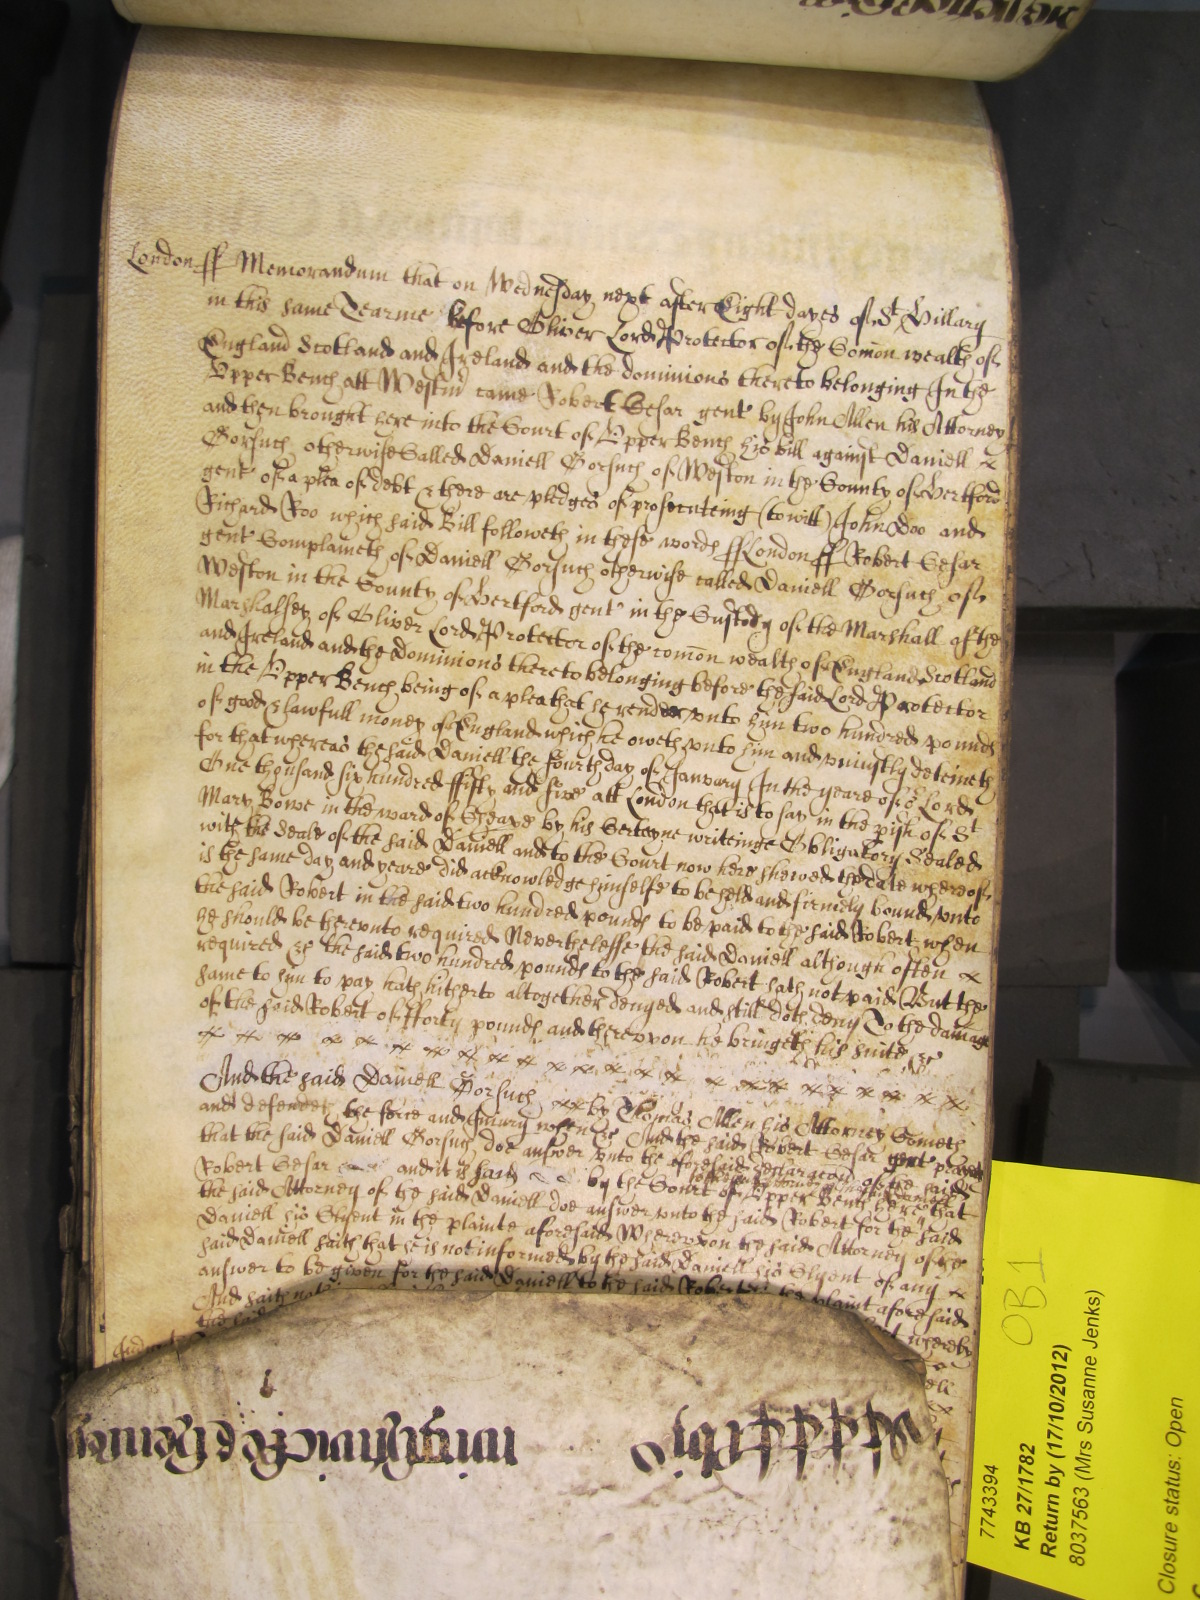 London ss Memorandum that on Wednesday next after Eight dayes of St Hillary
in this same Tearme before Oliver Lord Protector of the Com̄on wealth of
England Scotland and Ireland and the dominions thereto belonging In the
Upper Bench att Westm̄ came Robert Cesar gent by John Allen his Attorney
and then brought here into the Court of Upper Bench his bill against Daniell
Gorsuch otherwise Called Daniell Gorsuch of Weston in the County of Hertford
gent of a plea of debt & there are pledges of prosecuteing (to witt) John Doo and
Richard Roo which said Bill followeth in these words ss London ss Robert Cesar
gent Complaineth of Daniell Gorsuch otherwise called Daniell Gorsuch of
Weston in the County of Hertford gent in the Custody of the Marshall of the
Marshalsey of Oliver Lord Protector of the com̄on wealth of England Scotland
and Ireland and the Dominions thereto belonging before the said Lord Protector
in the Upper Bench being of a plea that he render unto him two hundred pounds
of good & lawfull money of England which he oweth unto him and uniustly deteineth
for that whereas the said Daniell the fourth day of January In the yeare of or Lord
One thousand six hundred ffifty and five att London that is to say in the pish of St
Mary Bowe in the ward of Cheape by his Certeyne writeinge Obligatory Sealed
with the Seale of the said Daniell and to the Court now here shewed the date whereof
is the same day and yeare did acknowledge himselfe to be held and firmely bound unto
the said Robert in the said two hundred pounds to be paid to the said Robert when
he should be thereunto required Neverthelesse the said Daniell although often
required &c the said two hundred pounds to the said Robert hath not paid But the
same to him to pay hath hitherto altogether denyed and still doth deny To the damage
of the said Robert of fforty pounds and thereupon he bringeth his suite &c
And the said Daniell Gorsuch by Thomas Allen his Attorney Cometh
and defendeth the force and Iniury when &c And the said Robert Cesar gent prayeth
that the said Daniell Gorsuch doe answer unto the aforesaid declaracōn of the said
Robert Cesar and it is said by the Court of Upper Bench here that
the said Attorney of the said Daniell doe answer unto the said Robert for the said
Daniell his Clyent in the plainte aforesaid Whereupon the said Attorney of the
said Daniell saith that he is not informed by the said Daniell his Clyent of any
answer to be given for the said Daniell to the said Robert in the plaint aforesaid
And saith whereby
the said
7743394
KB 27/1782
Return by (17/10/2012)
8037563 (Mrs Susanne Jenks)
Closure status: Open
OB 1